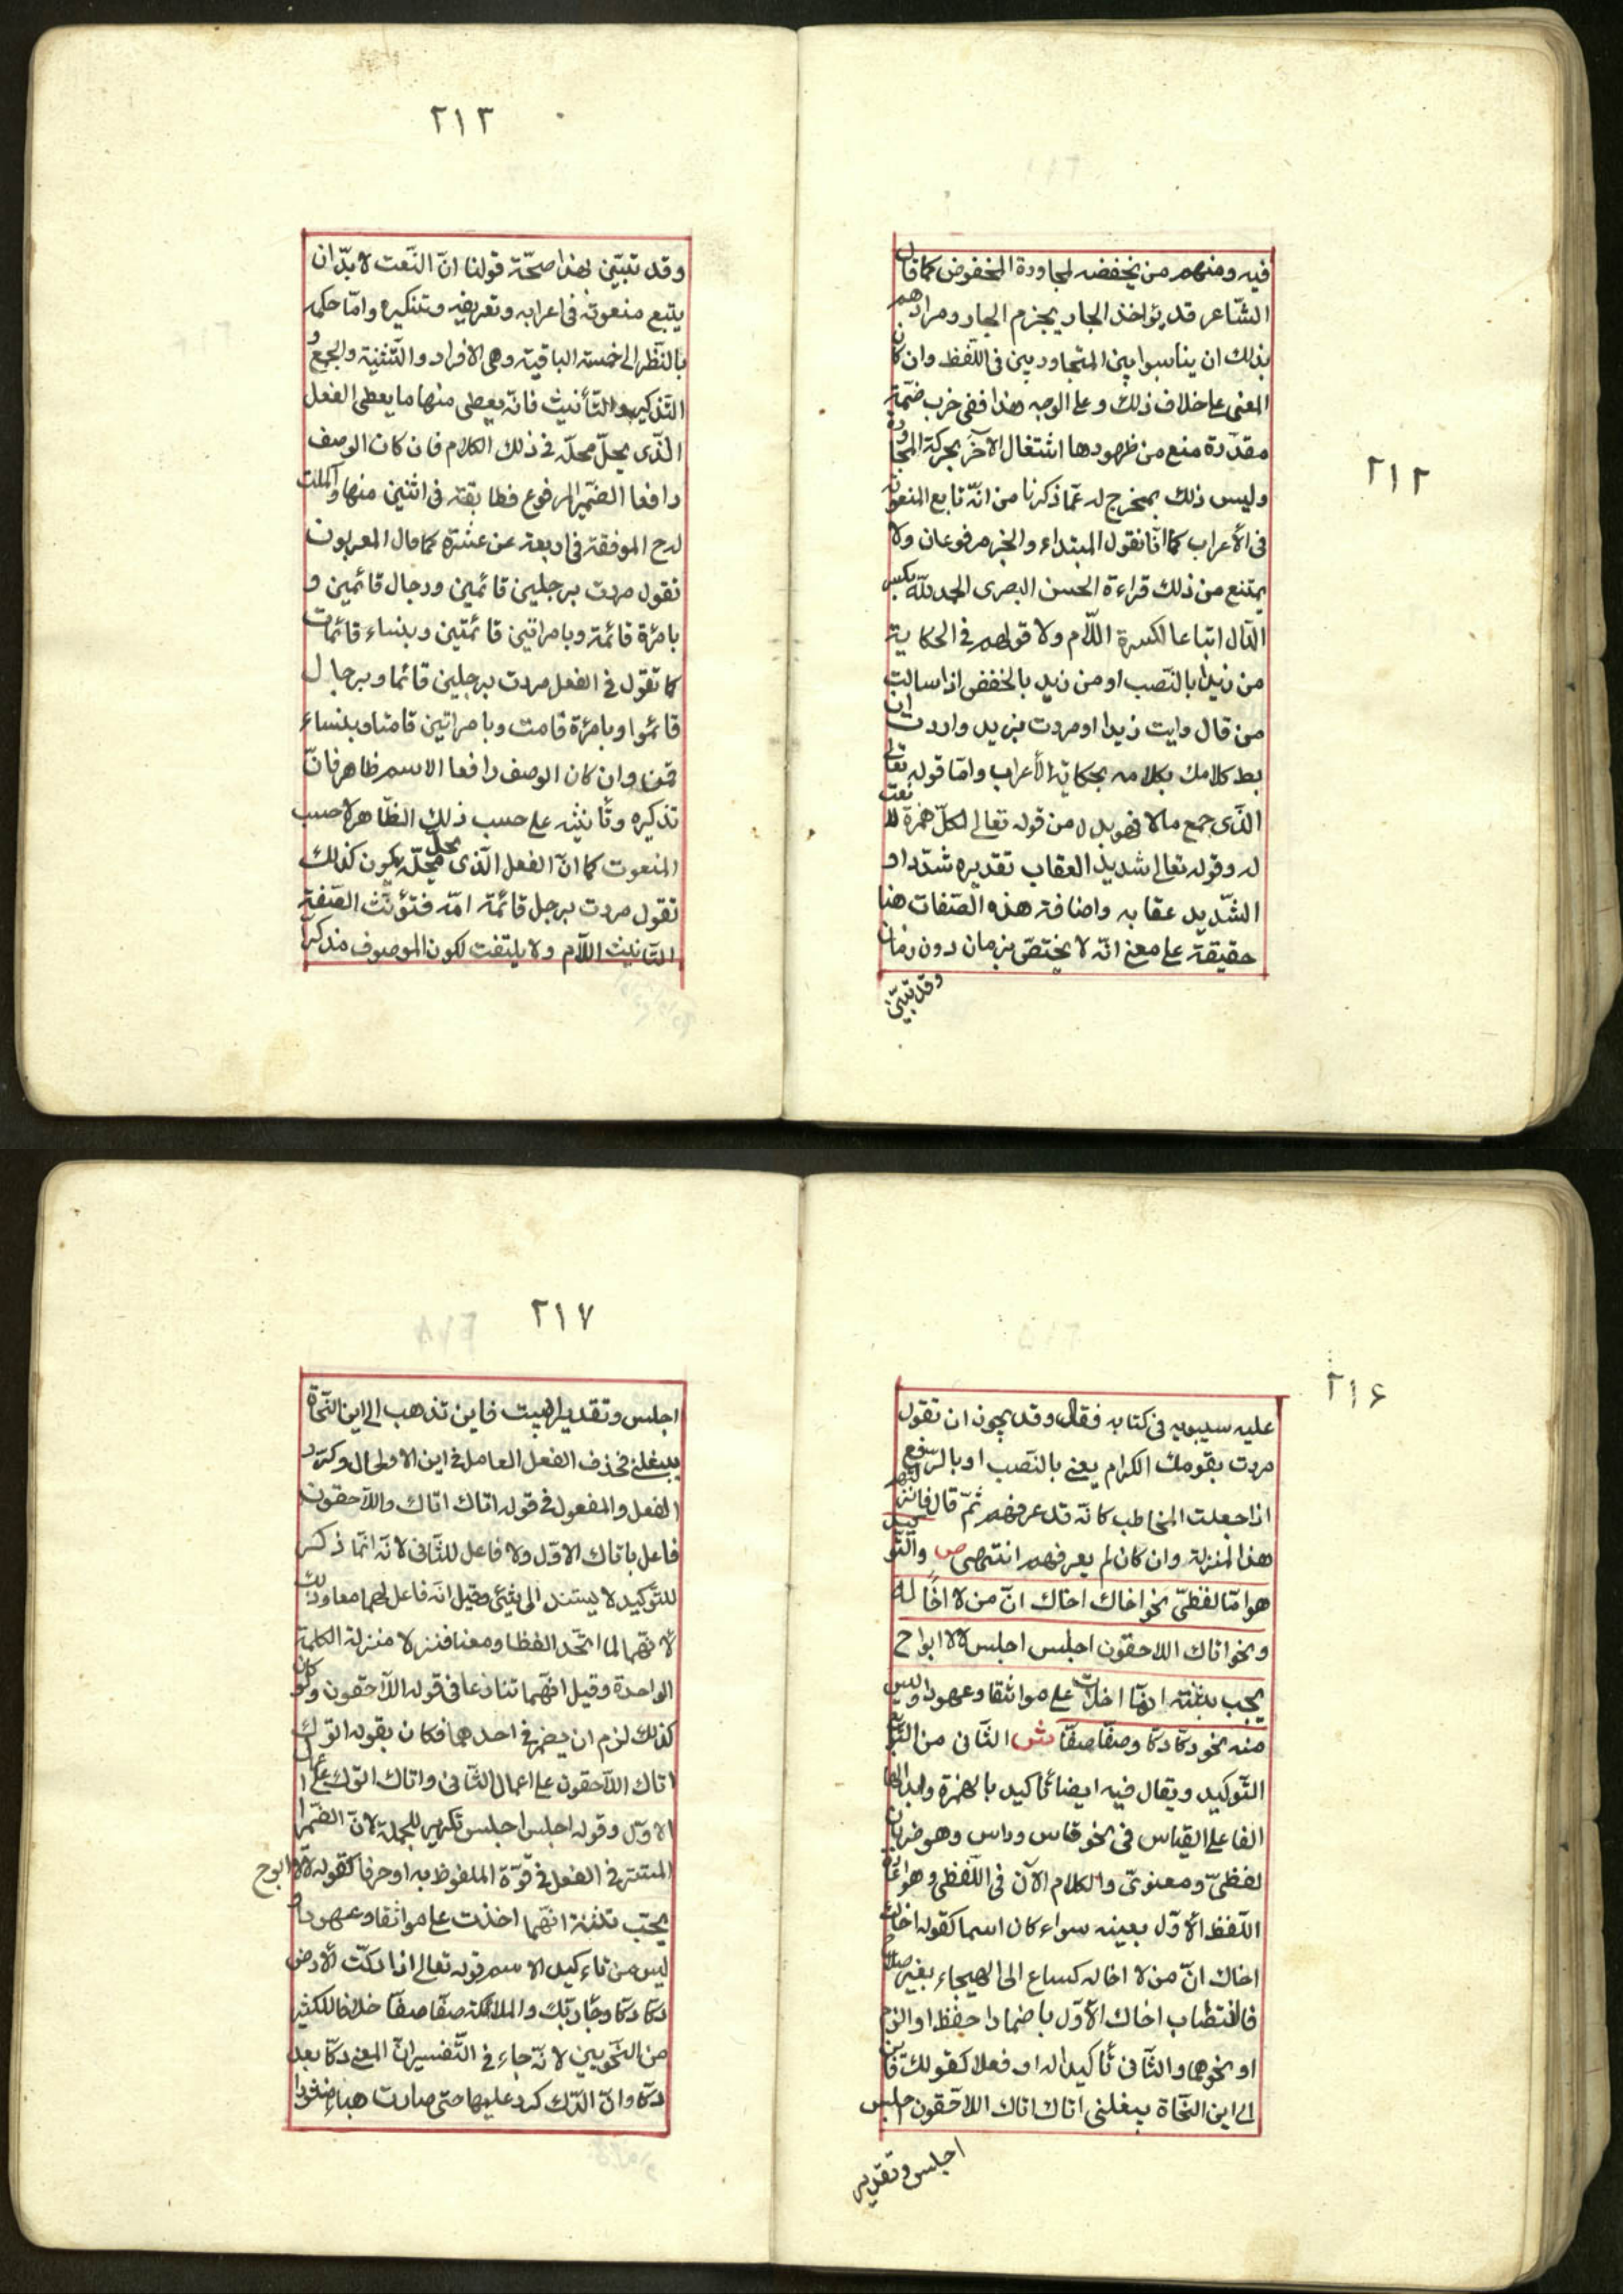 ٢١٢
فيه ومنهم من يخفضه لمجاورة المخفوض كما قال
الشّاعر قد يؤاخذ الجار بجرم الجار ومرادهم
بذلك ان يناسبوا بين المتجاورين فى اللّفظ وان كان
المعنى على خلاف ذلك وعلى الوجه هذا ففى خرب ضمّة
مقدّرة منع من ظهورها اشتغال الآخر بحركة المجاورة
وليس ذلك بمخرج له عمّا ذكرنا من انّه تابع المنعوته
فى الأعراب كما انّا نقول المبتداء والخبر مرفوعان ولا
يمتنع من ذلك قراءة الحسن البصرى الحمد لله بكسر
الدّال اتباعا لكسرة اللّام ولا قولهم فى الحكاية
من زيدا بالنّصب او من زيد بالخفض اذا سالت
من قال رايت زيدا او مررت بزيد واردت ان
بط كلامك بكلامه بحكاية الأعراب وامّا قوله تعالى
الذّى جمع مالا فهو بدل من قوله تعالى لكلّ همزة لا نعت
له وقوله تعالى شديد العقاب تقديره شدّد او
الشّديد عقابه واضافة هذه الصّفات هنا
حقيقة على معنى انّه لا يختصّ بزمان دون زمان
وقد تبيّن
٢١٣
وقد تبيّن بهذا صحّة قولنا انّ النّعت لا بدّ ان
يتبع منعوته فى اعرابه وتعريفه وتنكيره وامّا حكمه
بالنّظر الى خمسة الباقية وهى الافراد والتّثنية والجمع و
التّذكير والتّأنيث فانّه يعطى منها ما يعطى الفعل
الّذى يحلّ محلّه فى ذلك الكلام فان كان الوصف
رافعا الضّمير المرفوع فطابقته فى اثنين منها وكملت
له ح الموفقة فى اربعة من عشرة كما قال المعربون
تقول مررت برجلين قائمين ورجال قائمين و
بامرٔة قائمة وبامراتين قائمتين وبنساء قائمات
كما تقول فى الفعل مررت برجلين قائما وبرجال
قائموا وبامرٔة قامت وبامراتين قامتا وبنساء
قمن وان كان الوصف رافعا الاسم ظاهر فانّ
تذكيره وتأنيثه على حسب ذلك الظّاهر لا حسب
المنعوت كما انّ الفعل الّذى يحلّ محلّه يكون كذلك
تقول مررت برجل قائمة امّه فتؤنّث الصّفة
لتأنيث اللّام ولا يلتفت لكون الموصوف مذكرا
٢١۶
عليه سيبويه فى كتابه فقال وقد يجوز ان تقول
مررت بقومك الكرام يعنى بالنّصب او بالرفع
اذا جعلت المخاطب كانّه قد عرفهم ثمّ قال فانزلتهم
هذا المنزلة وان كان لم يعرفهم انتهى ص والتّوكيد
هو امّا لفظىّ نحو اخاك اخاك انّ من لا اخًا له
ونحو اتاك اللاحقون اجلس اجلس لالا ابواح
يجب بثنة انها اخذت على مواثقا وعهودا وليس
منه نحو دكّا دكّا وصفّا صفّا ش الثّانى من التّوابع
التّوكيد ويقال فيه ايضا تأكيد بالهمزة وابدالها
الفا على القياس فى نحو فاس وراس وهو ضربان
لفظىّ ومعنوىّ والكلام الآن فى اللّفظى وهو اعادة
اللّفظ الأوّل بعينه سواء كان اسما كقوله اخاك
اخاك انّ من لا اخا له كساع الى الهيجاء بغير سلاح
فانتصاب اخاك الأوّل باضمار احفظ او الزم
او نحوهما والثّانى تأكيدا له او فعلا كقولك فاين
الى اين النّجاة ببغلتى اتاك اتاك اللاحقون اجلس
اجلس وتقدير
٢١٧
اجلس وتقدير البيت فاين تذهب الى اين النّجاة
ببغلتى فحذف الفعل العامل فى اين الاولى وكرّر
الفعل والمفعول فى قوله اتاك اتاك واللّاحقون
فاعل باتاك الاوّل ولا فاعل للثّانى لانّه انّما ذكر
للتّوكيد لا يستند الى شيئ وقيل انّه فاعل لهما معا وذلك
لأنّهما لما اتّحد الفظا ومعنا فنزلا منزلة الكلمة
الواحدة وقيل انّهما تنازعا فى قوله اللّاحقون ولو كان
كذلك لزم ان يضمر فى احدهما فكان يقوله اتوك
اتاك اللّاحقون على اعمال الثّانى واتاك اتوك على
الاوّل وقوله اجلس اجلس تكرير للجملة لانّ الضّمير
المستتر فى الفعل فى قوّة الملفوظ به او حرفا كقوله لالا ابوح
بحبّ بثنة انّها اخذت على مواثقا وعهودا
ليس من تاءكيد الاسم قوله تعالى اذا دكّت الأرض
دكّا دكّا وجاء ربّك والملائكة صفّا صفّا خلافا للكثير
من النّحويين لانّه جاء فى التّفسير انّ المعنى دكّا بعد
دكّا وانّ الدّك كرر عليها حتى صارت هباء منثورا